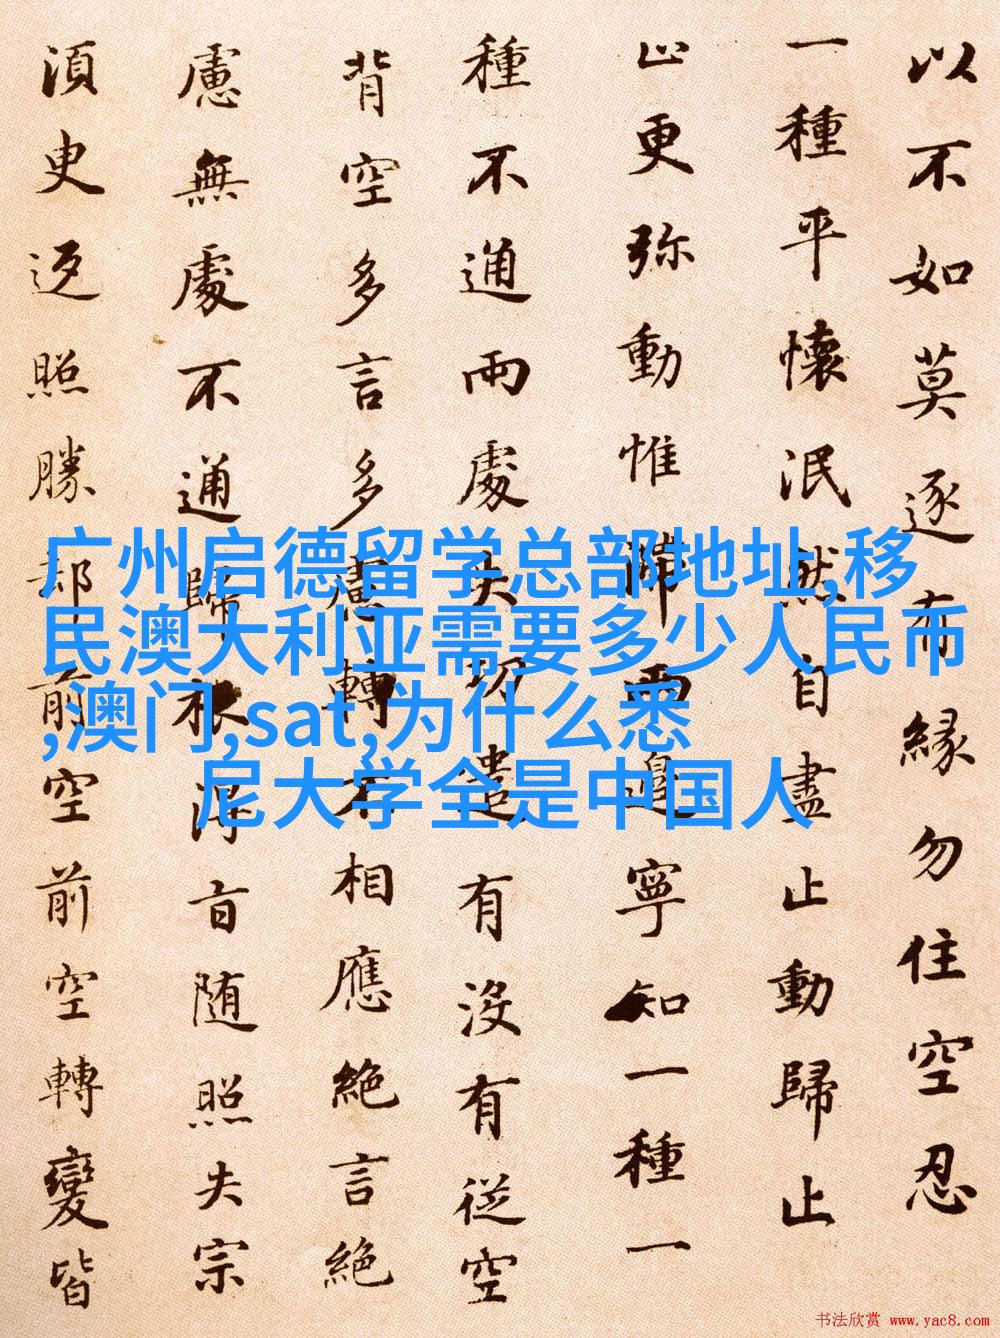 以不如莫逐有緣勿住空忍
一種平懷泯然自盡止動歸止
止更弥動惟滯兩邊寧知一種一
種不通兩處失功遣有没有從空
背空多言多慮轉不相應絶言絶
慮無處不通歸根得旨随照失宗
須臾返照勝却前空前空轉變皆
广州启德留学总部地址,移
民澳大利亚需要多少人民币
,澳门,sat,为什么悉
尼大学全是中国人
书法欣赏 www.yac8.com